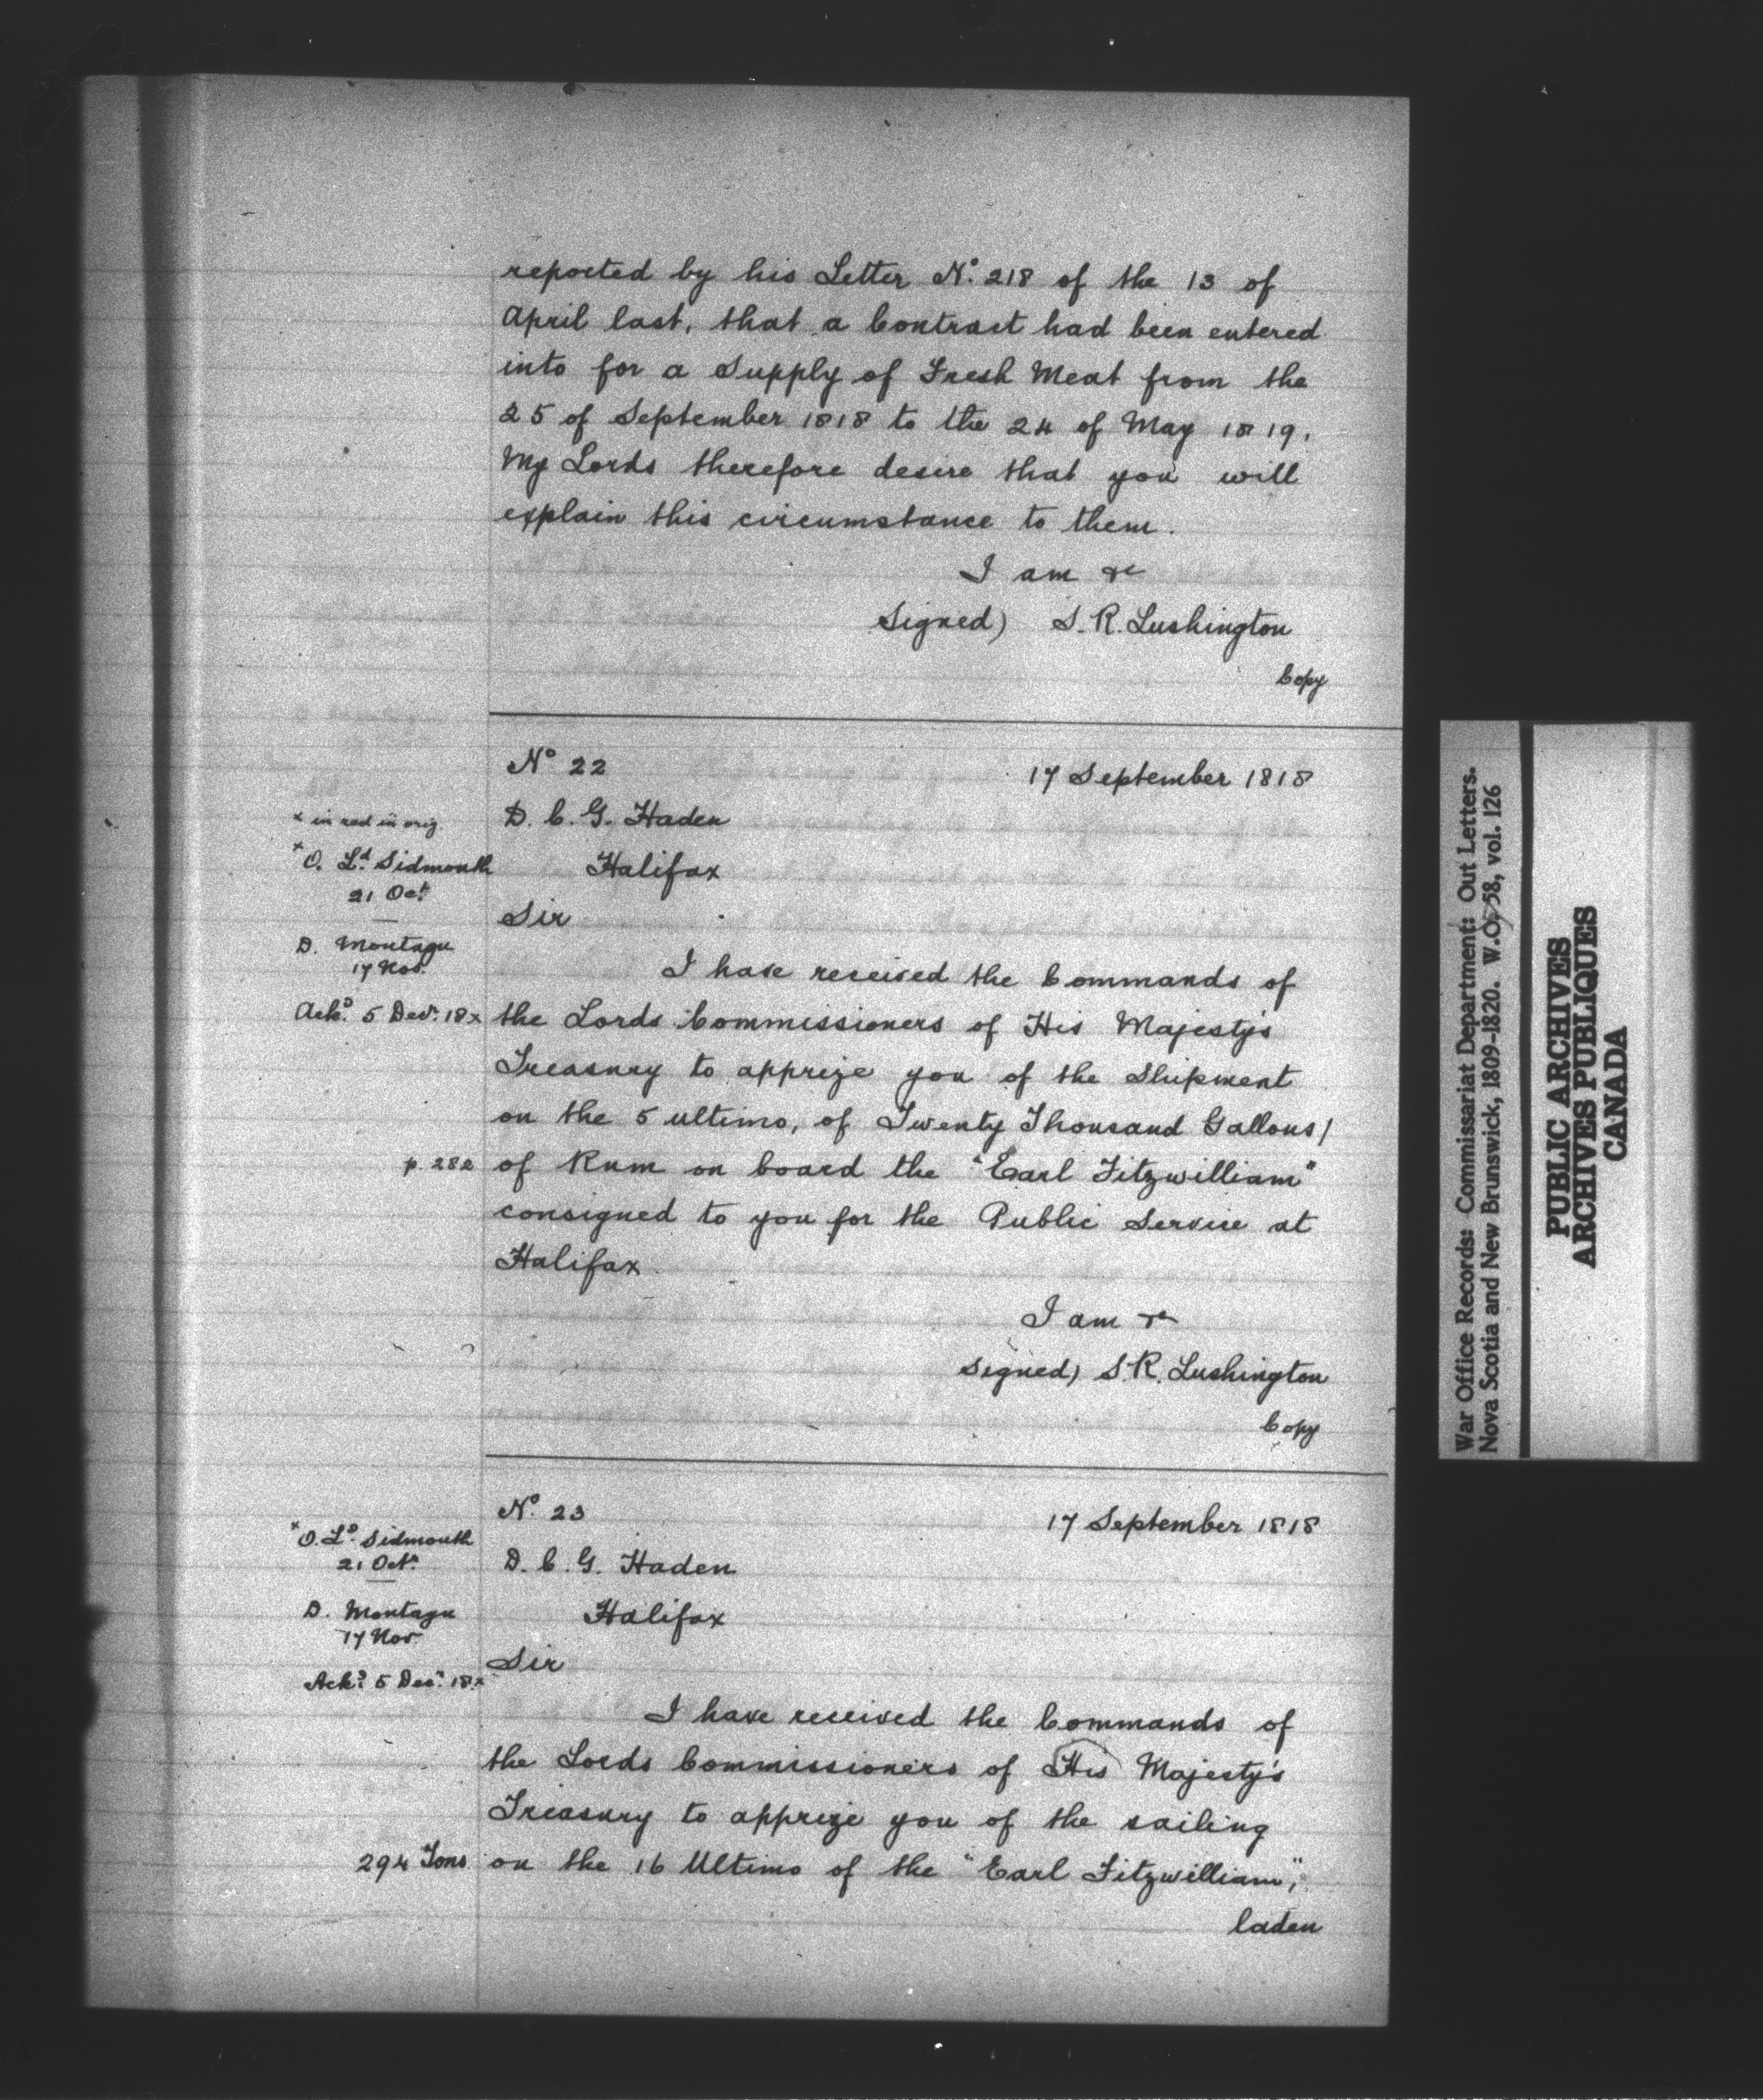 reported by his Letter No. 218 of the 13 of
April last, that a Contract had been entered
into for a Supply of Fresh Meat from the
25 of September 1818 to the 24 of May 1819.
My Lords therefore desire that you will
explain this circumstance to them.
I am &c
Signed) S. R. Lushington
Copy
No 22
17 September 1818
x in red in orig
D. C. G. Haden
x O. Ld. Sidmouth
21 Oct.
Halifax
Sir
D. Montagu
17 Nov.
I have received the Commands of
Ackd. 5 Decr. 18 x
the Lords Commissioners of His Majesty's
Treasury to apprize you of the Shipment
on the 5 ultimo, of Twenty Thousand Gallons /
p. 282
of Rum on board the "Earl Fitzwilliam"
consigned to you for the Public Service at
Halifax.
I am &c
Signed) S. R. Lushington
Copy
No. 23
17 September 1818
x O. Ld. Sidmouth
21 Octr.
D. C. G. Haden
D. Montagu
17 Nov.
Halifax
Sir
Ackd. 5 Decr. 18 x
I have received the Commands of
the Lords Commissioners of His Majesty's
Treasury to apprize you of the sailing
294 Tons
on the 16 Ultimo of the "Earl Fitzwilliam",
laden
War Office Records: Commissariat Department: Out Letters.
Nova Scotia and New Brunswick, 1809-1820. W.O. 58, vol. 126
PUBLIC ARCHIVES
ARCHIVES PUBLIQUES
CANADA